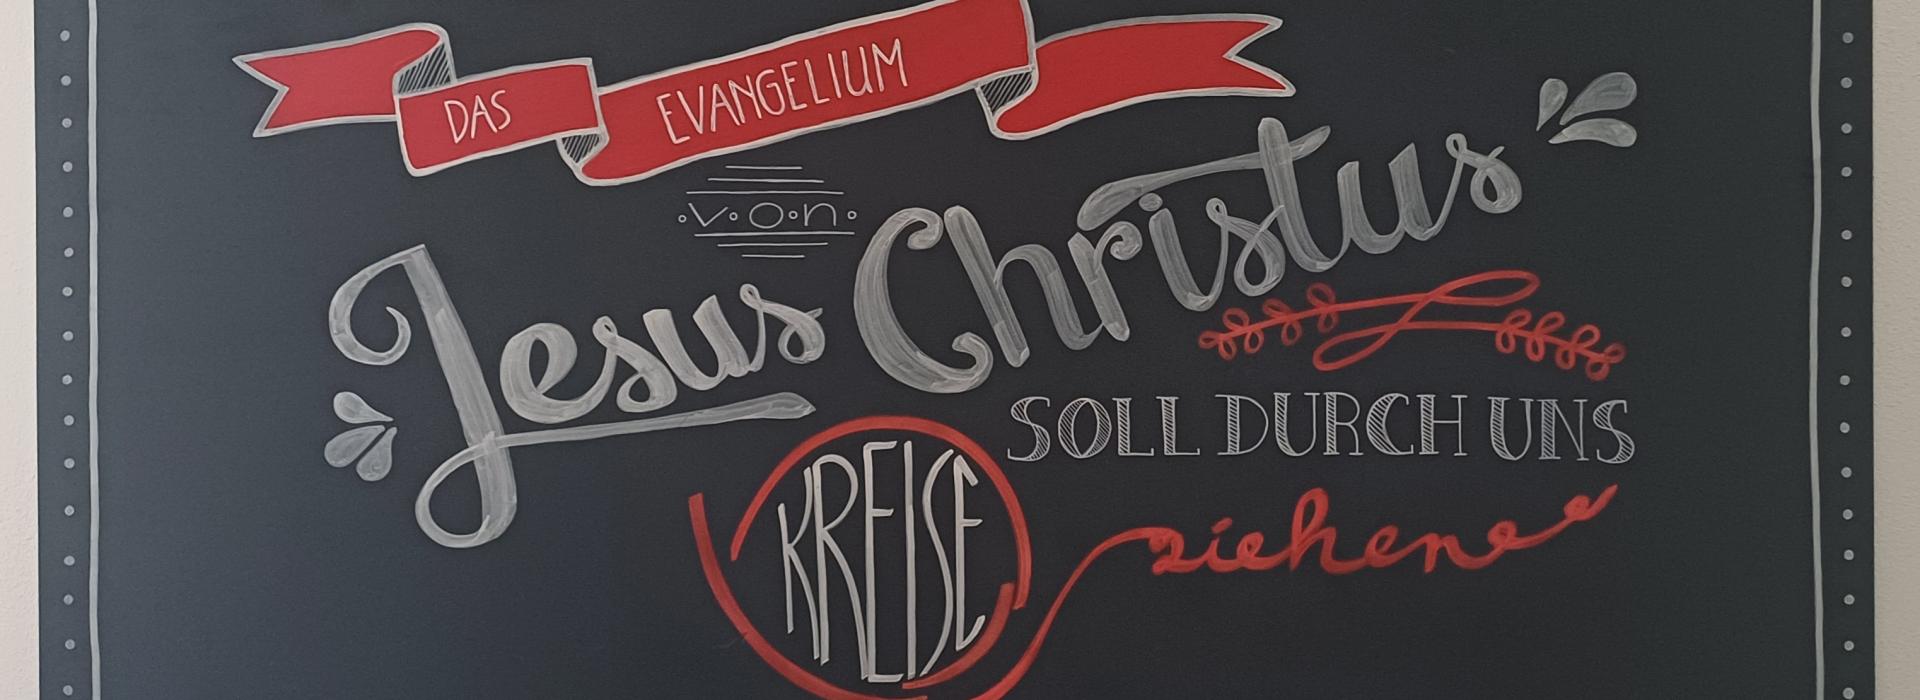 DAS EVANGELIUM
von
Jesus Christus
SOLL DURCH UNS
KREISE
ziehen